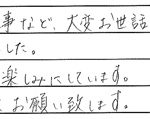 事など、大変お世話
した。
楽しみにしています。
お願い致します。